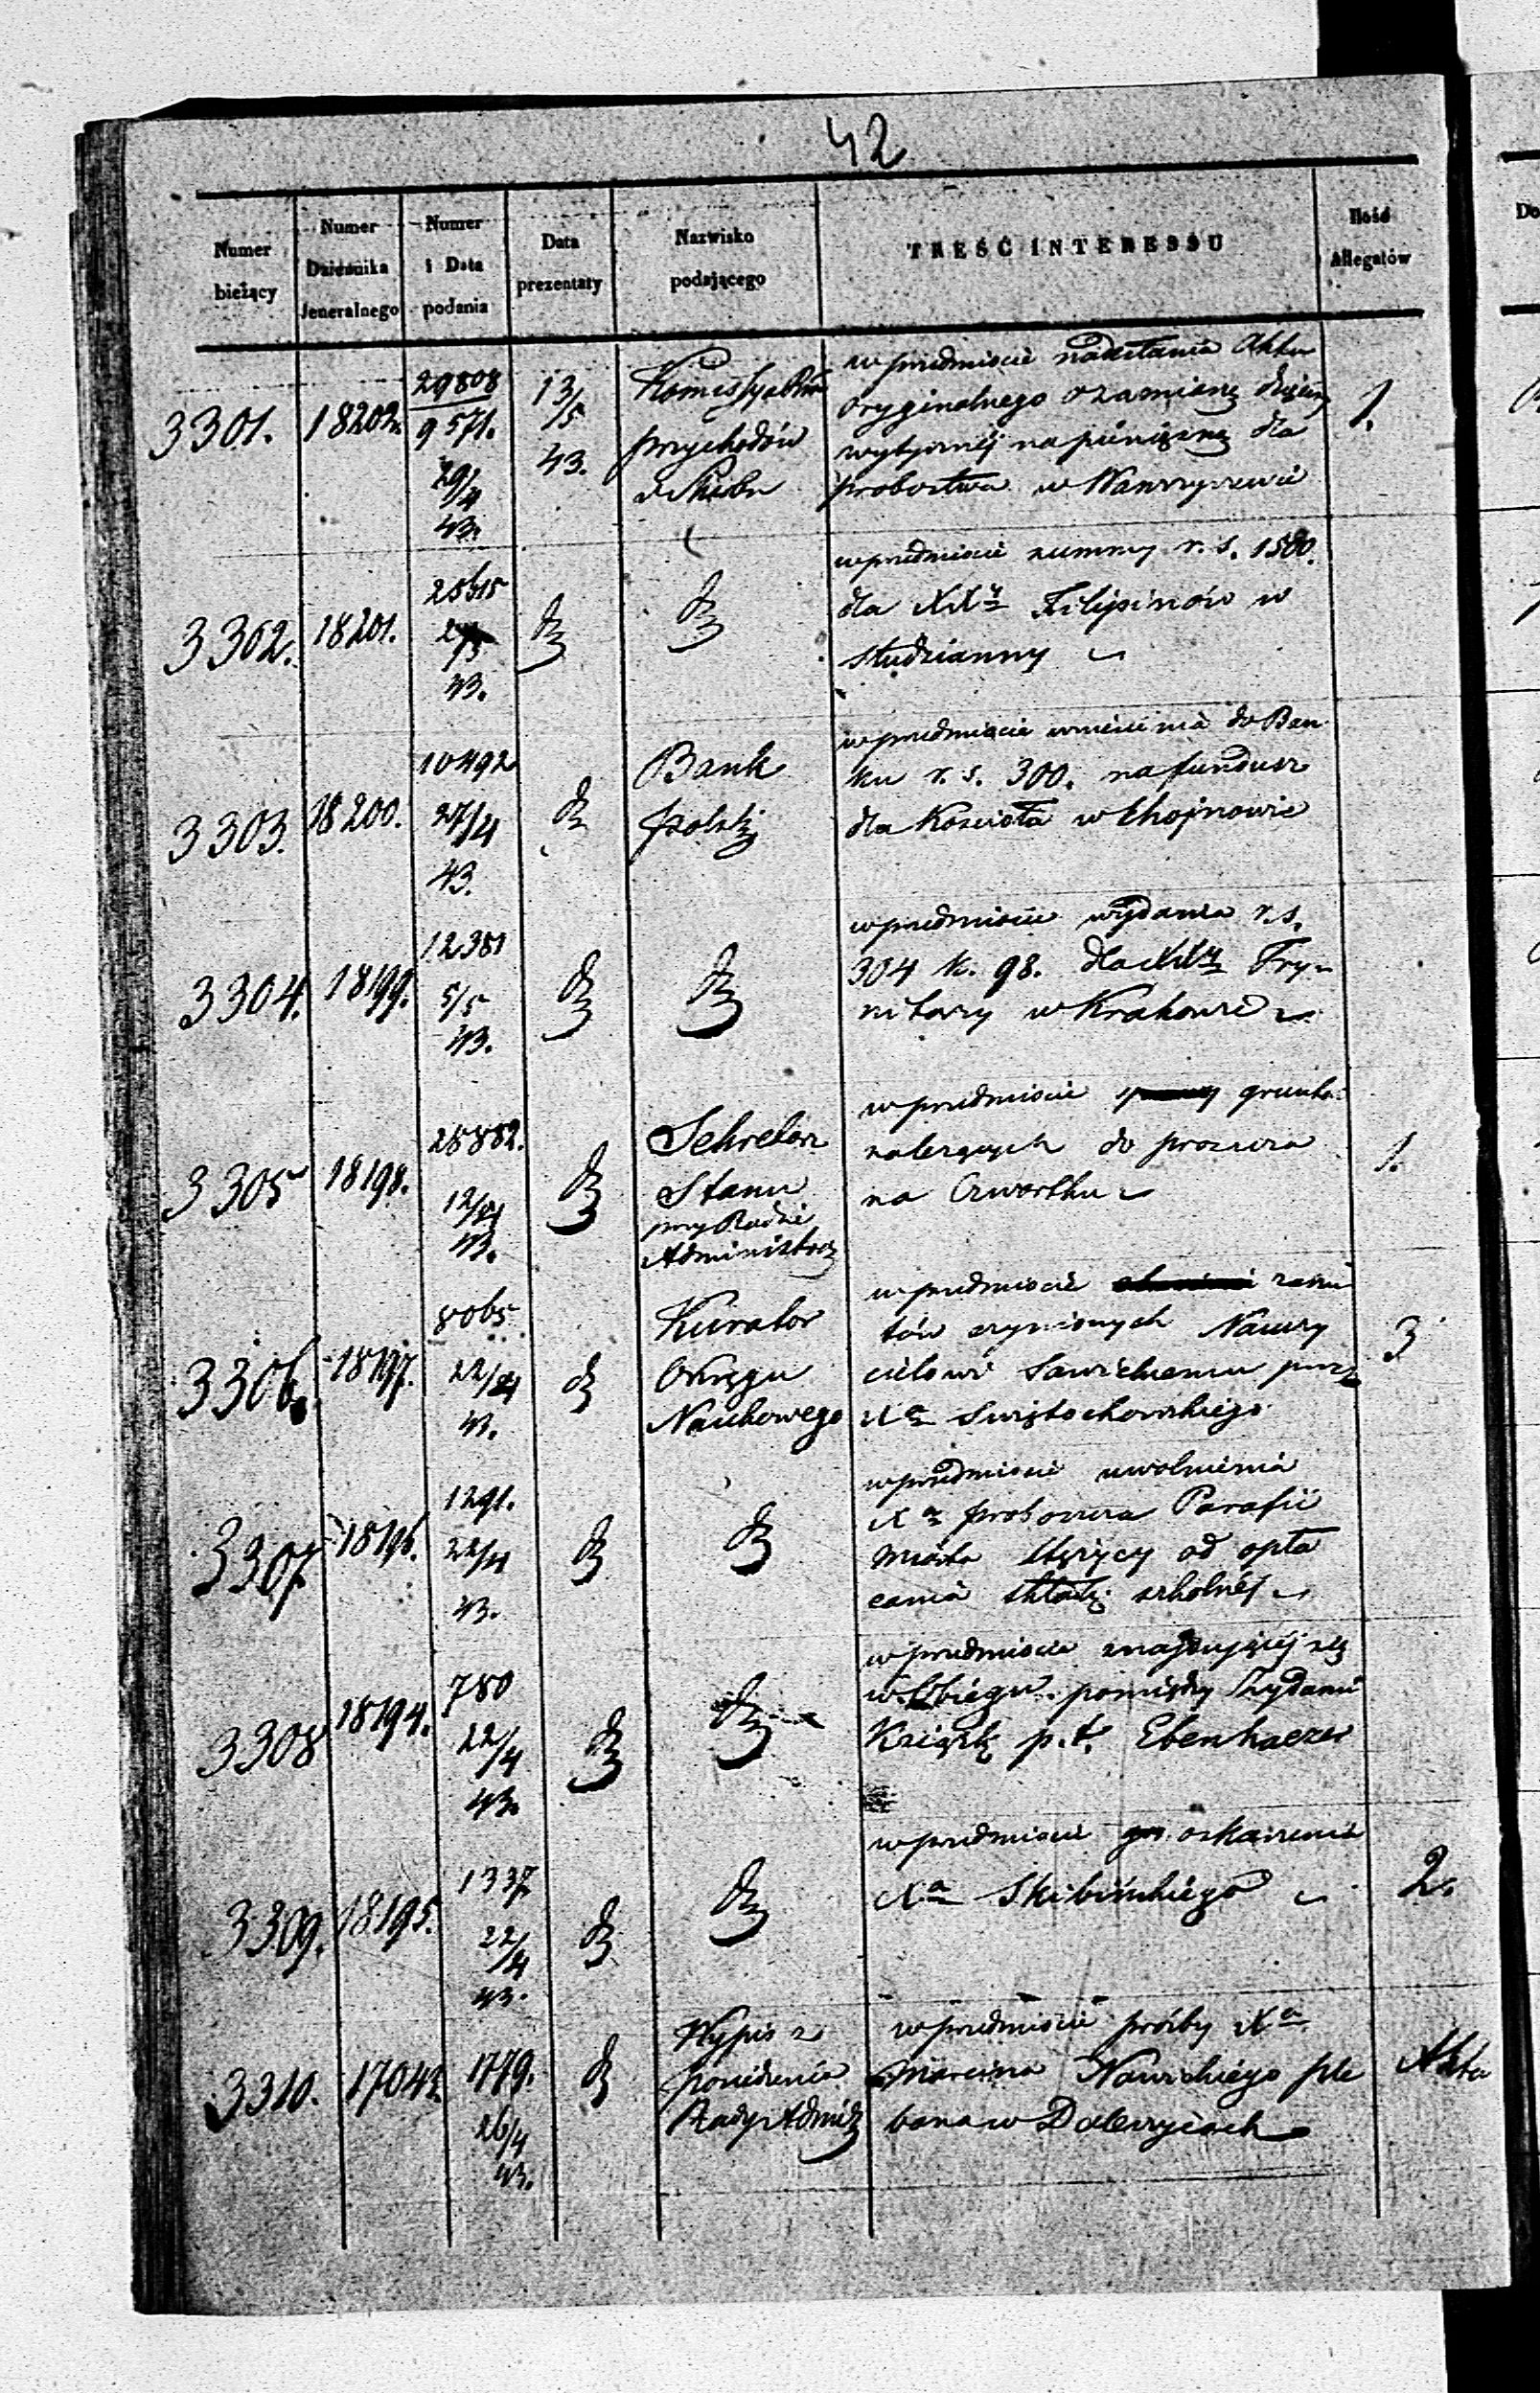 42
Numer bieżący
Numer Dziennika Jeneralnego
Numer i Data podania
Data prezentaty
Nazwisko podającego
TREŚĆ INTERESSU
Ilość Allegatów
3301.
18202.
29808
9571.
29/4
43.
13/5
43.
Kommissya Rząd
przychodów
i Skarbu
w przedmiocie nadesłania Aktu
oryginalnego o zamianę dziesięciny
wytycznéj na pieniężną dla
probostwa w Wawrzyszewie
1.
3302.
18201.
/5
43.
w przedmiocie summy r. s. 1500.
dla XXy Filipinów w
Studzianny
3303.
18200.
10492
27/4
43.
Bank
Polski
w przedmiocie wniesienia do Ban
ku r. s. 300. na fundusz
dla Kościoła w Chojnowie
3304.
18199.
12381
5/5
43.
w przedmiocie wydania r. s.
304 k. 98. dla XXy Try-
nitarzy w Krakowie
3305
18198.
28882.
12/4
43.
Sekretarz
Stanu
przy Radzie
Administrac
w przedmiocie gruntu
należących do
na Czwartku
1.
3306.
18197.
8065
22/4
43.
Kurator
Okręgu
Naukowego
w przedmiocie zarzu
tów czynionych Nauczy
cielowi Sawickiemu przez
Xa Świętochowskiego
3
3307
18196.
1291.
22/4
43.
w przedmiocie uwolnienia
Xa proboszcza Parafii
miasta Stężycy od opła
cania składki szkolnéj
3308
18194.
780
22/4
43.
w przedmiocie znajdującéj się
w Obiegu pomiędzy Żydami
Książki p. t. Ebenhaezer
3309.
18195.
1337
22/4
43.
w przedmiocie oskarżenia
Xa Skibińskiego
2.
3310.
17042.
1779.
26/4
43.
Wypis z
posiedzenia
Rady Admi
w przedmiocie prośby Xa
Marcina Nawickiego ple
bana w Daleszycach
Akta